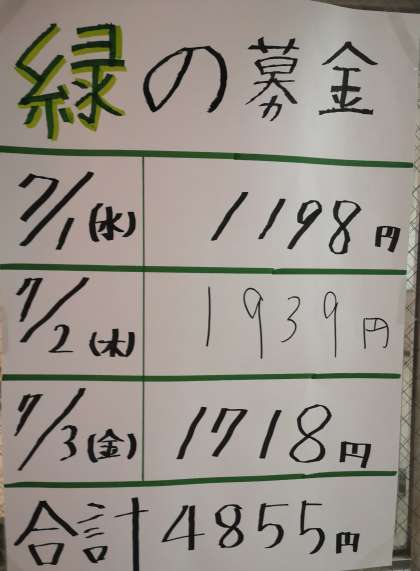 緑の募金
7/1(水) 1198円
7/2(木) 1939円
7/3(金) 1718円
合計 4855円